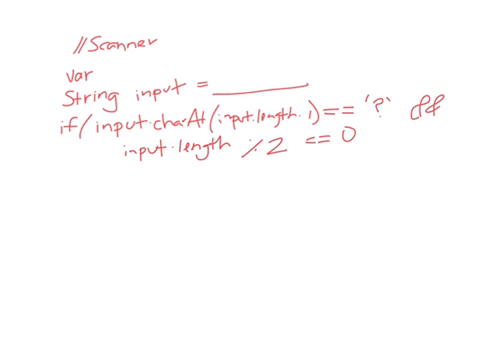 //Scanner
var
String input = 
if(input.charAt(input.length.1) == '?' &&
input.length % 2 == 0